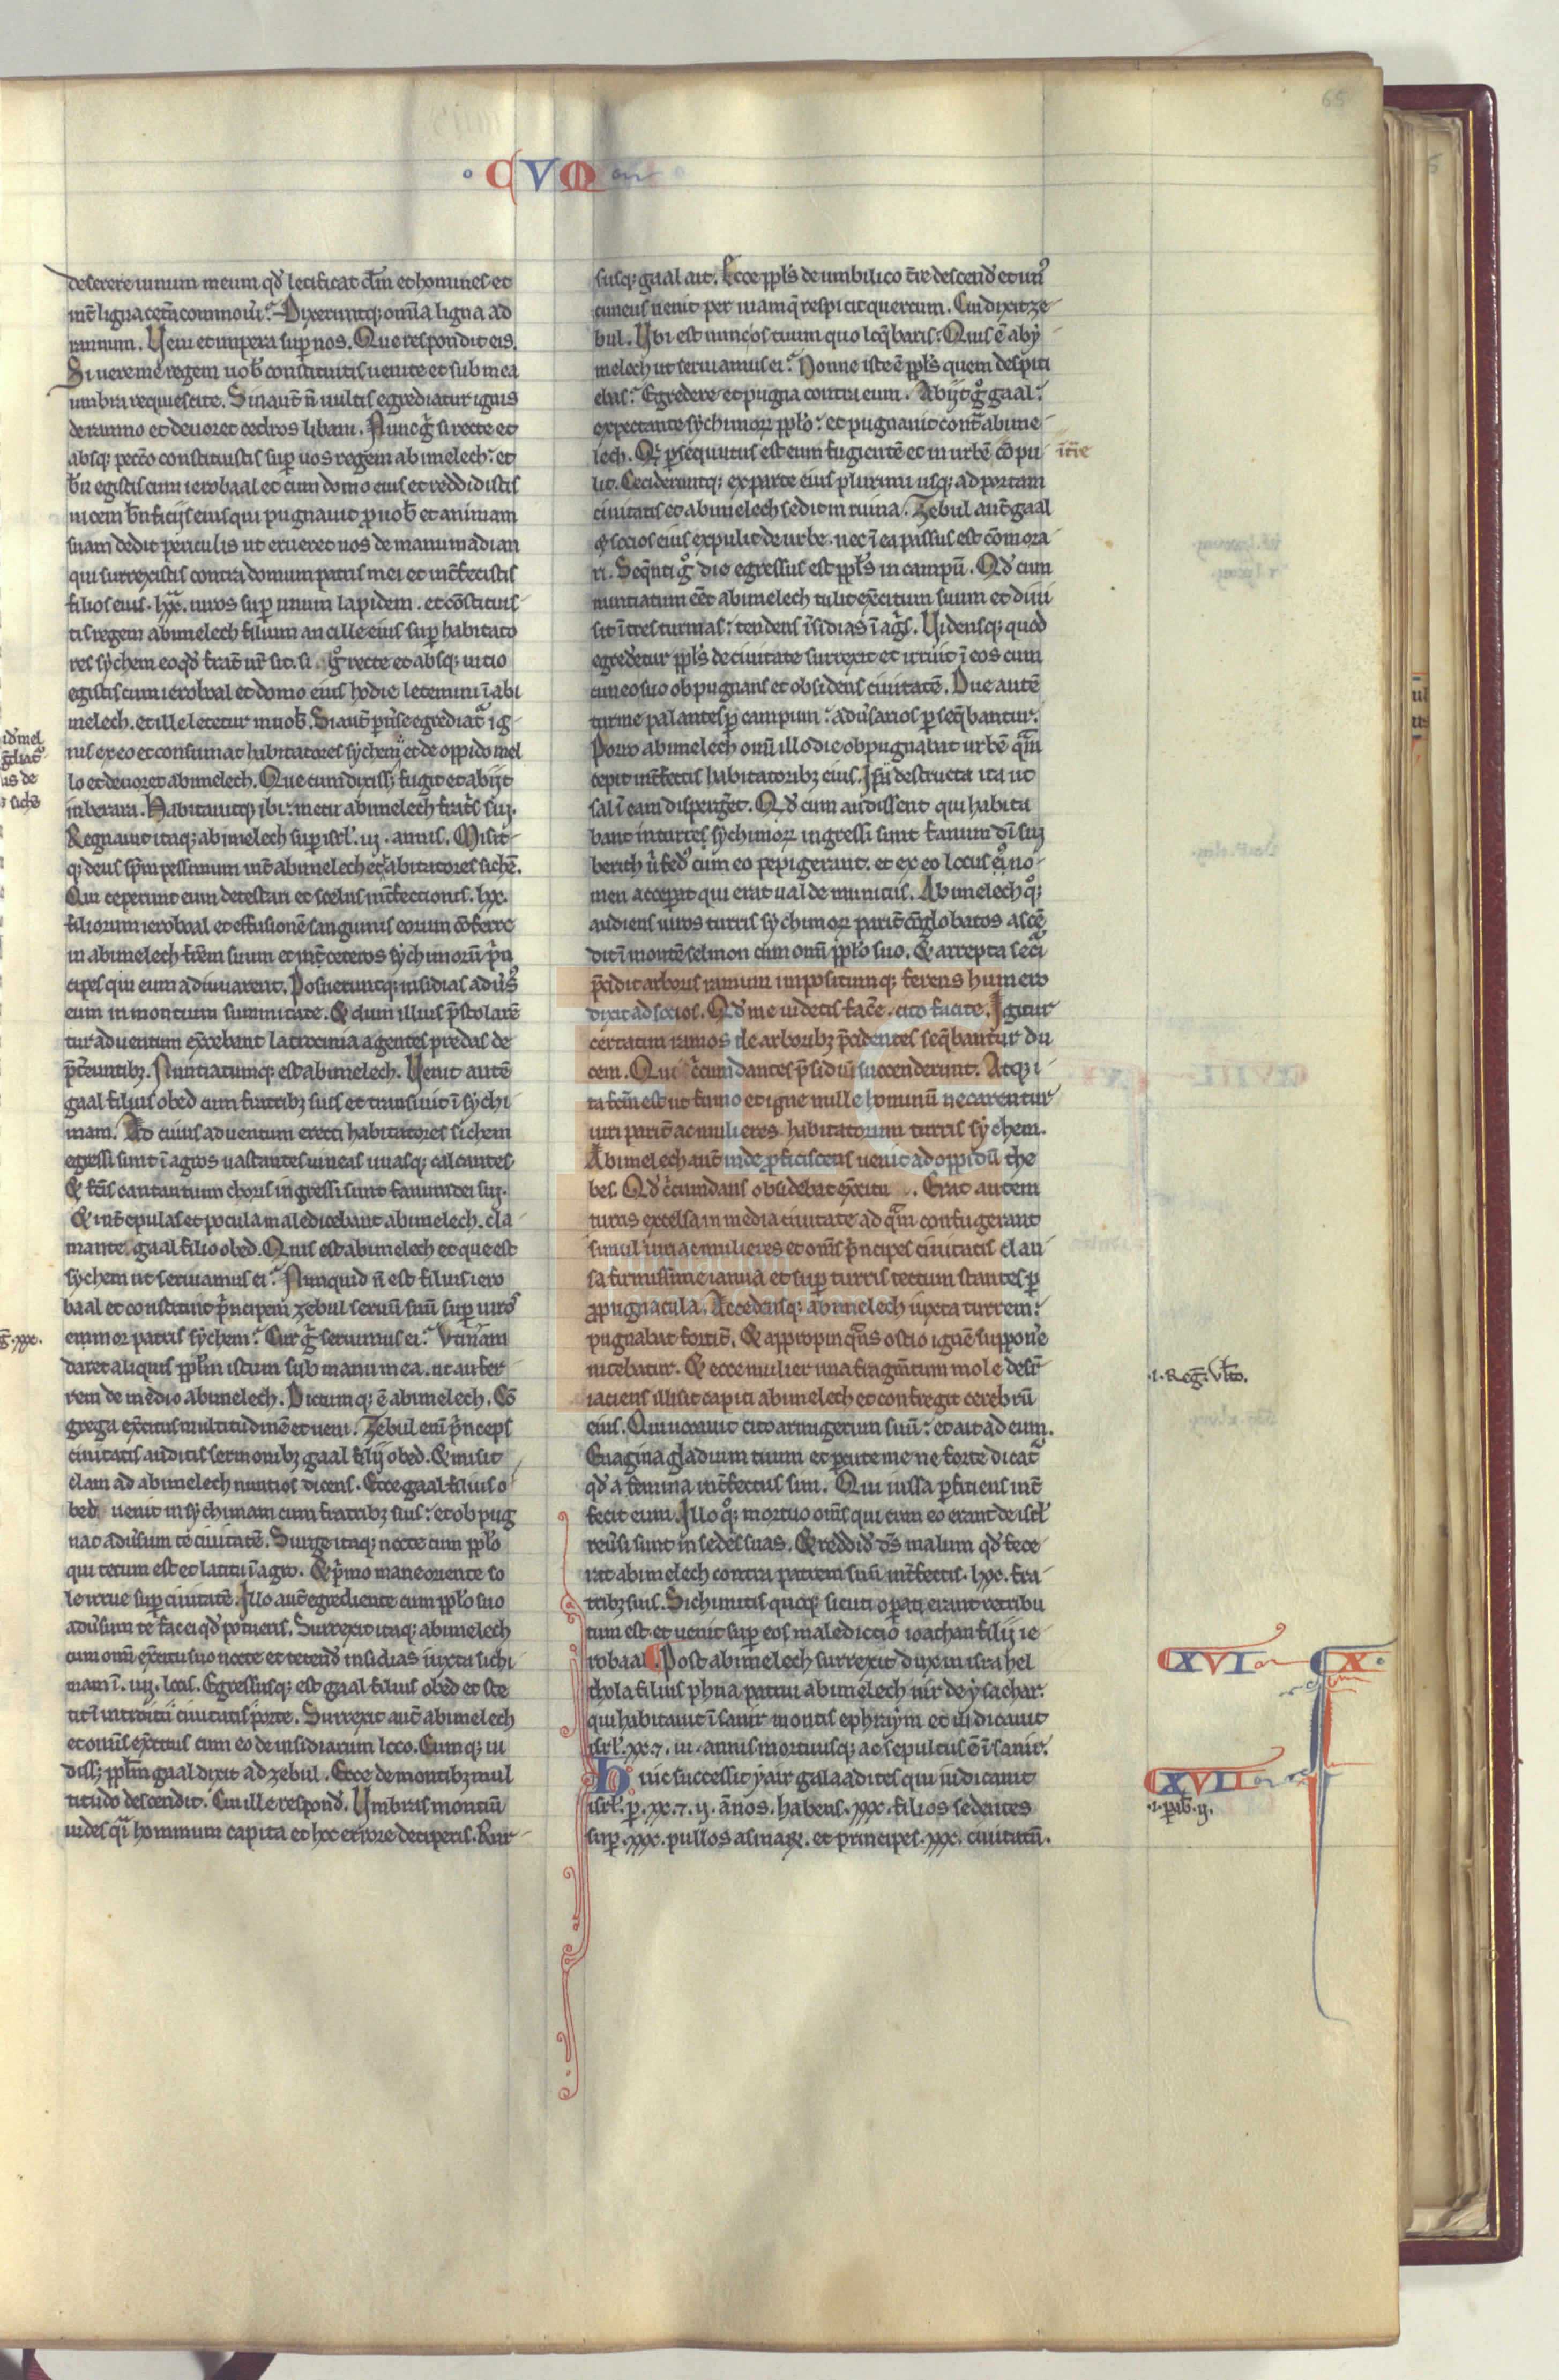 65
CVM
deserere uinum meum qd̓ letificat dm̄ et homines et
int̄ ligna cet̓a com̄oueri? Dixeruntq; om̄ia ligna ad
ramnum. Veni et impera sup̱ nos. Que respondit eis.
Si uere me regem uob̄ constituitis uenite et sub mea
umbra requiescite. Sin aut̄ n̄ uultis egrediatur ignis
de ramno et deuoret cedros libani. Nunc g̓ si recte et
absq; pecc̄o constituistis sup̱ uos regem abimelech: et
bn̄ egistis cum ierobaal et cum domo eius et reddidistis
uicem bn̄ficijs eius qui pugnauit p̱ uob̄ et animam
suam dedit periculis ut erueret uos de manu madian
qui surrexistis contra domum patris mei et int̓fecistis
filios eius .lxx. uiros sup̱ unum lapidem . et c̄stituis
tis regem abimelech filium ancille eius sup̱ habitato
res sychem eo qd̓ frat̓ ur̄ sit. si g̊ recte et absq; uicio
egistis cum ierobaal et domo eius hodie letemini ī abi
melech. et ille letetur in uob̄. Si aut̄ p̱use egrediat̓ ig
nis ex eo et consumat habitatores sychem et de oppido mel
lo et deuoret abimelech. Que cum dixiss; fugit et abijt
in berara. Habitauitq; ibi: metu abimelech frat̓s sui.
Regnauit itaq; abimelech sup̱ isrl̄ .iij. annis. Misit
q; deus sp̄m pessimum int̄ abimelech et habitatores sichē.
Qui ceperunt eum detestari et scelus int̓fectionis .lxx.
filiorum ierobaal et effusionē sanguinis eorum cōferre
in abimelech fr̄em suum et int̄ ceteros sychimorū p̓n
cipes qui eum adiuuarent. Posueruntq; insidias adūs̓
eum in montium summitate. Et dum illius p̄stolarē
tur aduentum exc̓ebant latrocinia agentes predas de
p̄t̓euntibz. Nuntiatumq; est abimelech. Venit autē
gaal filius obed cum fratribz suis et transiuit ī sychi
mam. Ad cuius aduentum erecti habitatores sichem
egressi sunt ī agros uastantes uineas uuasq; calcantes.
Et fc̄is cantantium choris ingressi sunt fanum dei sui.
Et int̄ epulas et pocula maledicebant abimelech. cla
mante gaal filio obed. Quis est abimelech et que est
sychem ut seruiamus ei? Nunquid n̄ est filius iero
baal et constituit p̓ncipem zebul seruū suū sup̱ uiros
emmor patris sychem? Cur g̓ seruimus ei? Vtinam
daret aliquis ppl̄m istum sub manu mea. ut aufer
rem de medio abimelech. Dictumq; ē abimelech. Cō
grega exc̓itus multitudinē et ueni. Zebul eni̅ p̓nceps
ciuitatis auditis sermonibz gaal filij obed. Et misit
clam ad abimelech nuntios dicens. Ecce gaal filius o
bed uenit in sychimam cum fratribz suis: et obpug
nat adūsum te ciuitatē. Surge itaq; nocte cum ppl̄o
qui tecum est et latita ī agro. Et p̓mo mane oriente so
le irrue sup̱ ciuitatē. Illo aut̄ egrediente cum ppl̄o suo
adūsum te fac ei qd̓ potueris. Surrexit itaq; abimelech
cum om̄i exc̓itu suo nocte et tetend̓ insidias iuxta sichi
mam ī .iiij. locis. Egressusq; est gaal filius obed et ste
tit ī introitu ciuitatis porte. Surrexit aut̄ abimelech
et om̄is exc̓itus cum eo de insidiarum loco. Cumq; ui
diss; ppl̄m gaal dixit ad zebul. Ecce de montibz mul
titudo descendit. Cui ille respond̓. Vmbras montiū
uides q̓i hominum capita et hoc errore deciperis. Rur
susq; gaal ait. Ecce ppl̄s de umbilico t̓re descend̓ et un̓
cuneus uenit per uiam q̄ respicit quercum. Cui dixit ze
bul. Vbi est nunc os tuum quo loq̄baris? Quis ē aby
melech ut seruiamus ei? Nonne iste ē ppl̄s quem despici
ebas? Egredere et pugna contra eum. Abijt g̊ gaal:
expectante sychimoꝝ ppl̄o: et pugnauit cont̓ abime
lech. Q̓ p̱sequutus est eum fugientē et in urbē cōpu
lit. Cecideruntq; ex parte eius plurimi usq; ad portam
ciuitatis et abimelech sedit in ruina. Zebul aut̄ gaal
et socios eius expulit de urbe. nec ī ea passus est cōmora
ri. Seq̄nti g̊ die egressus est ppl̄s in campū. Qd̓ cum
nuntiatum eēt abimelech tulit exc̓itum suum et diui
sit ī tres turmas: tendens īsidias ī ag̓s. Vidensq; quod
egredetur ppl̄s de ciuitate surrexit et irruit ī eos cum
cuneo suo obpugnans et obsidens ciuitatē. Due autē
turme palantes p̱ campum: adūsarios p̱seq̄bantur.
Porro abimelech om̄i illo die obpugnabat urbē q̄m
cepit int̓fectis habitatoribz eius. Ip̄a destructa ita ut
sal ī eam disperg̓et. Qd̓ cum audissent qui habita
bant in turres sychimoꝝ ingressi sunt fanum dī sui
berith ū fed̓ cum eo pepigerant. et ex eo locus no
men acceperat qui erat ualde munitus. Abimelech q̊;
audiens uiros turris sychimoꝝ parit̄ cōglobatos ascē
dit ī montē selmon cum om̄i ppl̄o suo. Et arrepta secu̓i
p̄cidit arboris ramum impositumq; ferens humero
dixit ad socios. Qd̓ me uidetis fac̄e . cito facite. Igitur
certatim ramos de arboribz p̄cidentes seq̄bantur du
cem. Qui c̓cumdantes p̄sidiū succenderunt. Atq; i
ta fc̄m est ut fumo et igne mille hominū necarentur
uiri parit̄ ac mulieres habitatorum turris sychem.
Abimelech aut̄ inde p̱ficiscens uenit ad oppidū the
bes. Qd̓ c̓cumdans obsidebat exc̓itu . Erat autem
turris excelsa in media ciuitate ad q̄m confugerant
simul uiri ac mulieres et om̄s p̓ncipes ciuitatis clau
sa firmissime ianua et sup̱ turris tectum stantes p̱
p̱pugnacula. Accedensq; abimelech iuxta turrem:
pugnabat fortit̄. Et appropinq̓ns ostio ignē suppon̓e
nitebatur. Et ecce mulier una fragm̄tum mole desup̱
iaciens illisit capiti abimelech et confregit cerebrū
eius. Qui uocauit cito armigerum suū: et ait ad eum.
Euagina gladium tuum et p̱cute me ne forte dicat̓
qd̓ a femina int̓fectus sim. Qui iussa p̱ficiens int̓
fecit eum. Illo q̊; mortuo om̄s qui cum eo erant de isrl̄
reūsi sunt in sedes suas. Et reddid̓ d̄s malum qd̓ fece
rat abimelech contra patrem suū int̓fectis .lxx. fra
tribz suis. Sichimitis quoq; sicuti op̱ati erant retribu
tum est. et uenit sup̱ eos maledictio ioathan filij ie
robaal. Post abimelech surrexit dux in israhel
thola filius phua patrui abimelech uir de ysachar.
qui habitauit ī sanir montis ephraym et iudicauit
isrl̄ .xx. 7 .iii. annis mortuusq; ac sepultus ē ī sanir.
Huic successit yair galaadites qui iudicauit
isrl̄ . p̱ .xx. 7 .ij. ānos. habens .xxx. filios sedentes
sup̱ .xxx. pullos asinaꝝ. et principes .xxx. ciuitatū.
.1. Reg̓. Vl̓to.
CXVI
CX.
CXVII
.1. pab̓. ij.